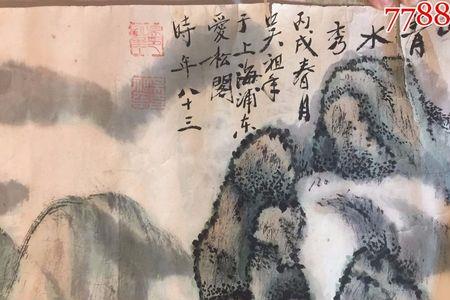 青水
秀
丙戌春月
吴祖年
于上海浦东
愛松閣
時年八十三
7788